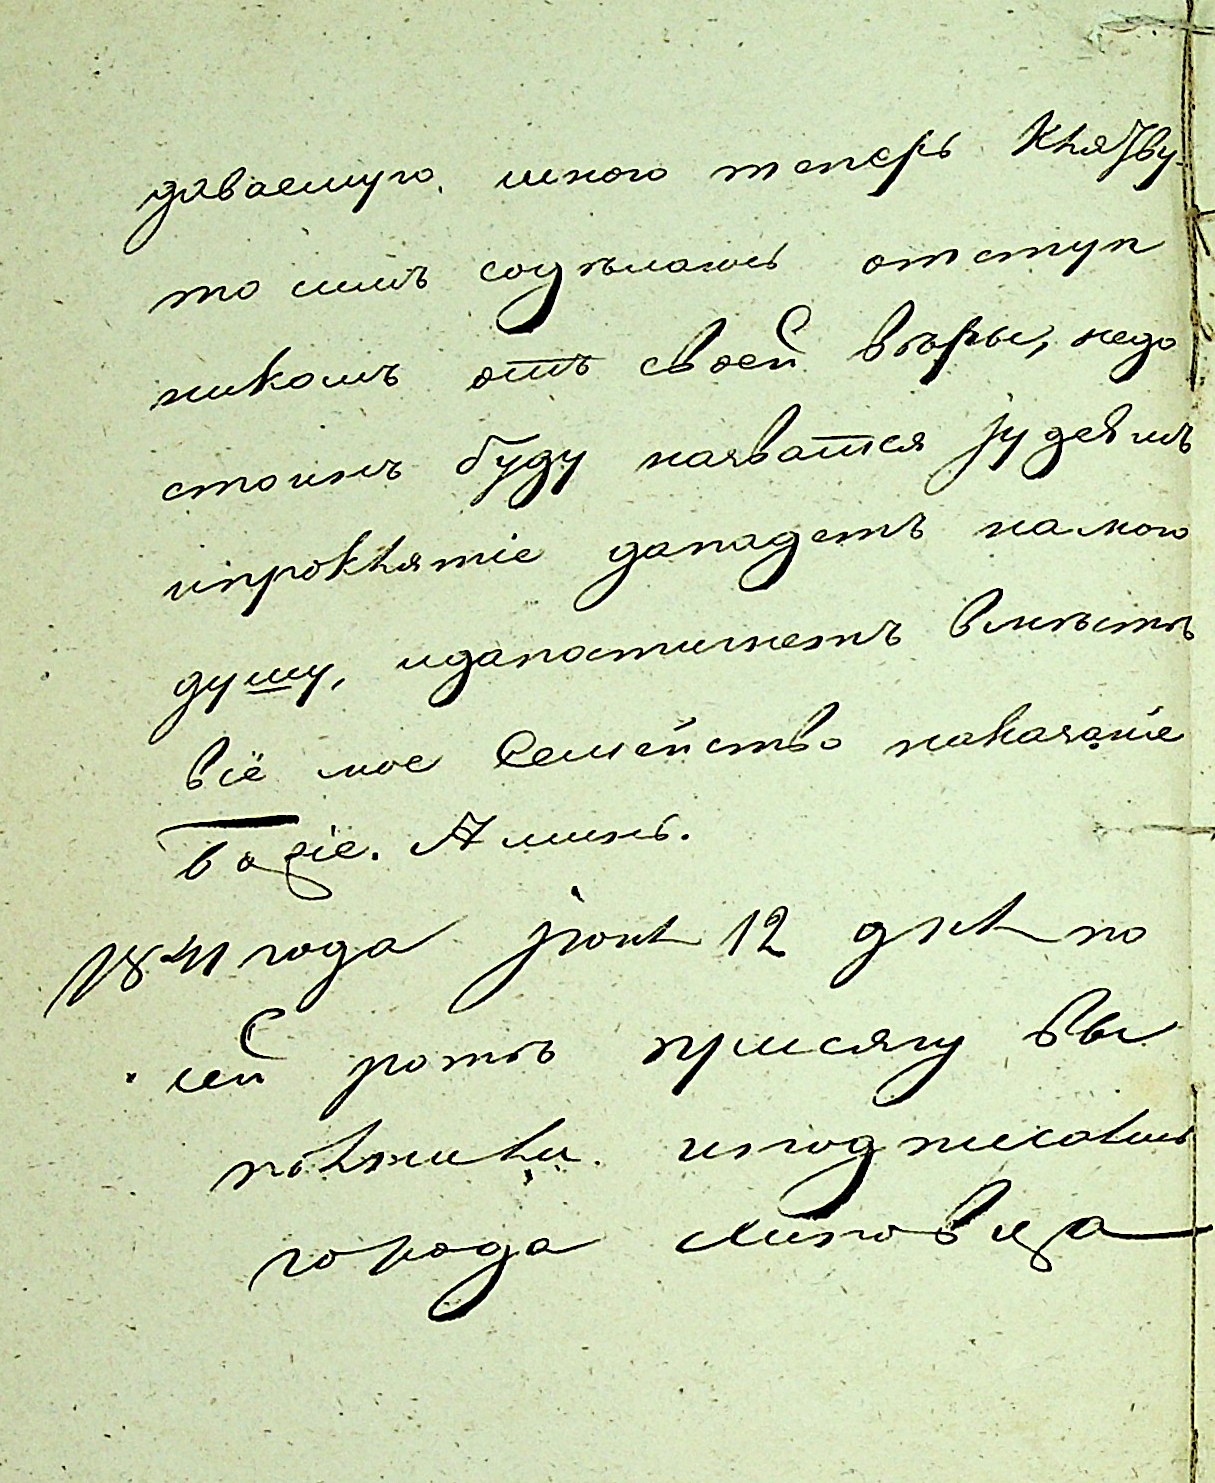 даваемую, мною теперь Клятву
то симъ содѣлаюсь отступ
никомъ отъ своей вѣры, недо
стоинъ буду назватся іудеемъ
ипроклятіе дападетъ намою
душу, идапостигнетъ вмѣстѣ
всё мое Семейство наказаніе
Божіе. Аминь.
1841 года іюня 12 дня по
сей ротѣ присягу вы
полнили. иподписались
города Липовца